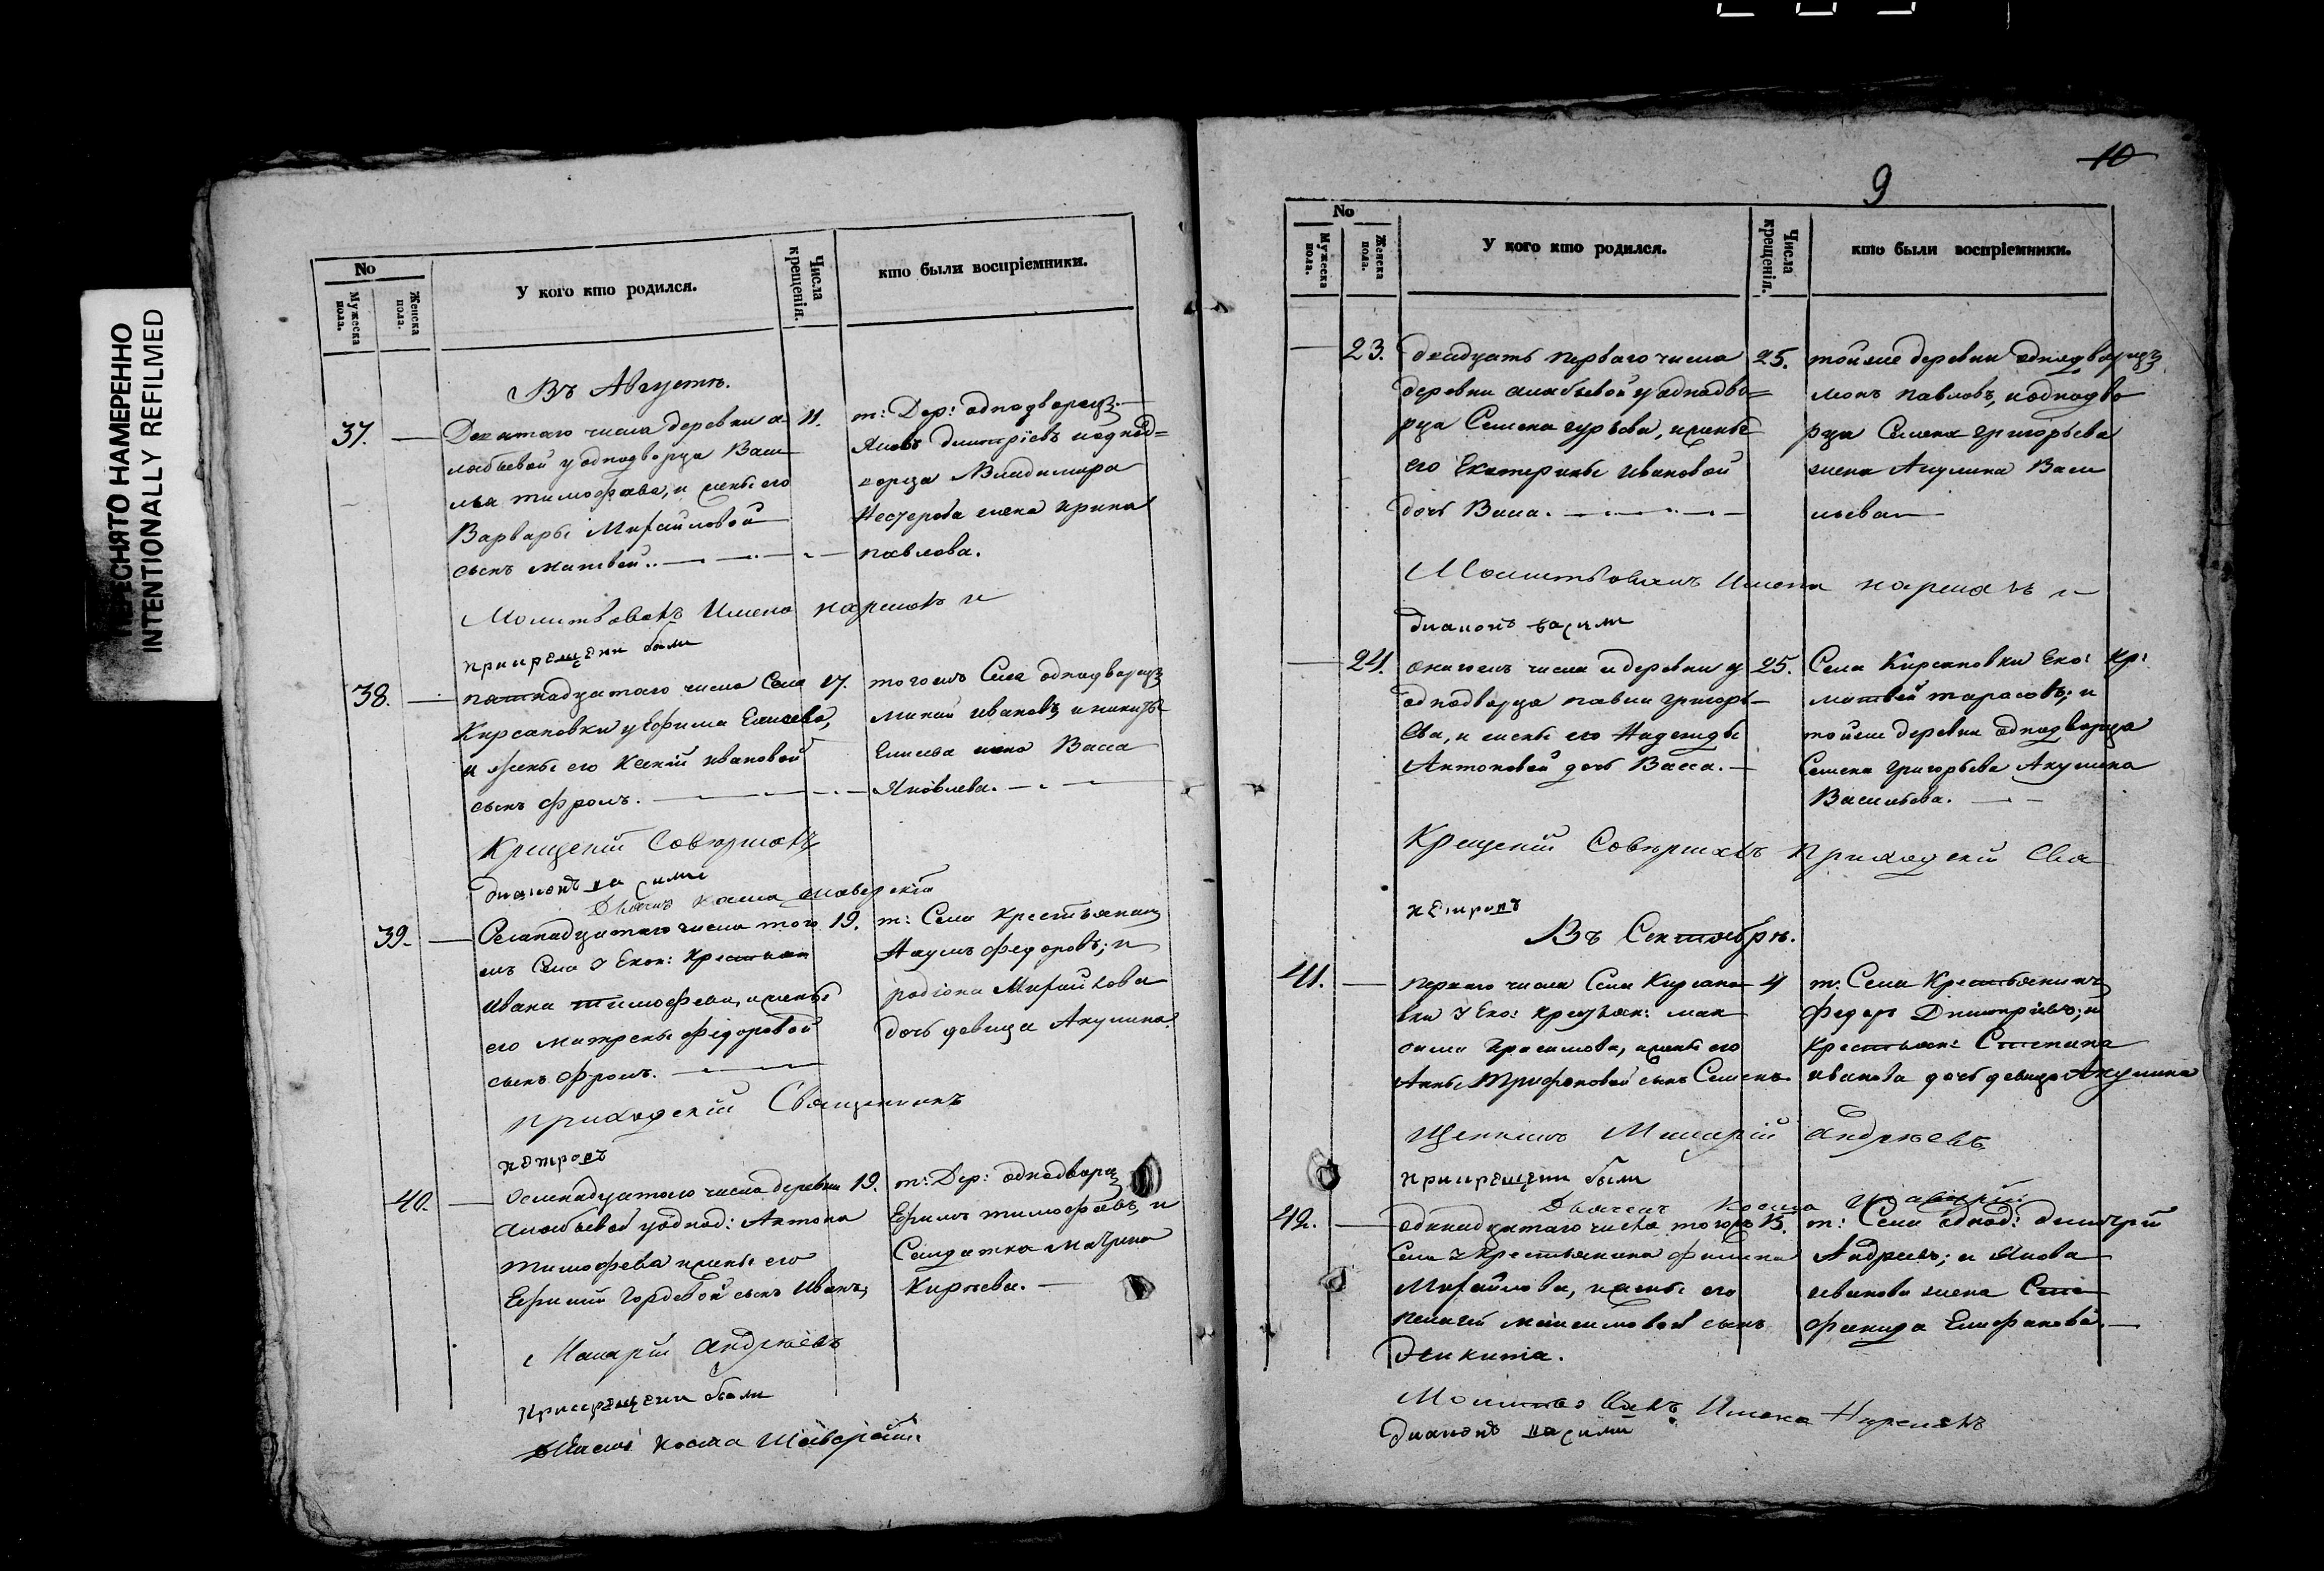 ПЕРЕСНЯТО НАМЕРЕННО
INTENTIONALLY REFILMED
No
Мужеска пола.
Женска пола.
У кого кто родился.
Числа крещенія.
кто были воспріемники.
Въ Августѣ.
37.
Десятаго числа деревни а-
лабьевой у однодворца Васи
лья тимофѣева, и жены его
Варвары Михайловой
сынъ матвей.
11.
т: Дер: однодворецъ
Яковъ димитріевъ и однод=
ворца Владимира
Нестерова жена ирина
павлова.
Молитвовалъ Имена нарекалъ и
при крещени были
38.
пятнадцатаго числа Села
Кирсановки у Ефима Елисѣева,
и жены его Ксеніи ивановой
сынъ фролъ.
17.
тогожъ Села однодворецъ
ивановъ и никиты
Елисѣева жена Васса
Яковлева.
Крещеніи Совершалъ
диаконъ
Дьячекъ Косма
39.
Осмнадцатаго числа того
жъ Села У Екон: Крестьян
Ивана тимофѣева, и жены
его матрены федоровой
сынъ фролъ.
19.
т: Села Крестьянинъ
Наумъ федоровъ; и
родіона Михайлова
дочь девица Акулина.
приходскій Священникъ
петровъ
40.
Осмнадцатаго числа деревни
алабьевой у однод: Антона
тимофѣева и жены его
Ефиміи Гордевой сынъ Иванъ,
19.
т: Дер: однодворец
Ефимъ тимофѣевъ, и
Солдатка
Макарій андрѣевъ
При крещени были
Косма
10
9
No
Мужеска пола.
Женска пола.
У кого кто родился.
Числа крещенія.
кто были воспріемники.
23.
двадцать перваго числа
деревни алабьевой у однодво=
рца Семена гурьева, и жены
его Екатерины Ивановой
дочь Васса.
25.
тойже деревни однодворецъ
павловъ, и однодво
рца Семена григорьева
жена Акулина Васи
льева
Молитвовалъ Имена нарекалъ и
диаконъ
24.
онагожъ числа и деревни у
однодворца павла григорь-
ева, и жены его Надежды
Антоновой дочь Васса.
25.
Села Кирсановки Еко: кр:
матвей тарасовъ; и
тойже деревни однодворца
Семена григорьева Акулина
Васильева.
Крещеніи Совершалъ приходскій Свя
петровъ
Въ Сентябрѣ.
41.
перваго числа Села Кирсано
вки У Еко: крестьян: мак
сима Герасимова, и жены его
Анны Трифоновой сынъ Семенъ.
4
т: Села Крестьянинъ
Федоръ Димитріевъ; и
крестьян: Степана
иванова дочь девица Акулина
щенникъ Макарій андрѣевъ
при крещени были
Дьячекъ Косма
42.
одинадцатаго числа тогожъ
Села У крестьянина филипа
Михайлова, и жены его
максимовой сынъ
Никита.
15.
т: Села однод: димитрій
Андреевъ; и Якова
иванова жена Сте
фанида Епифанова.
Молитвовалъ Имена Нарекалъ
диаконъ